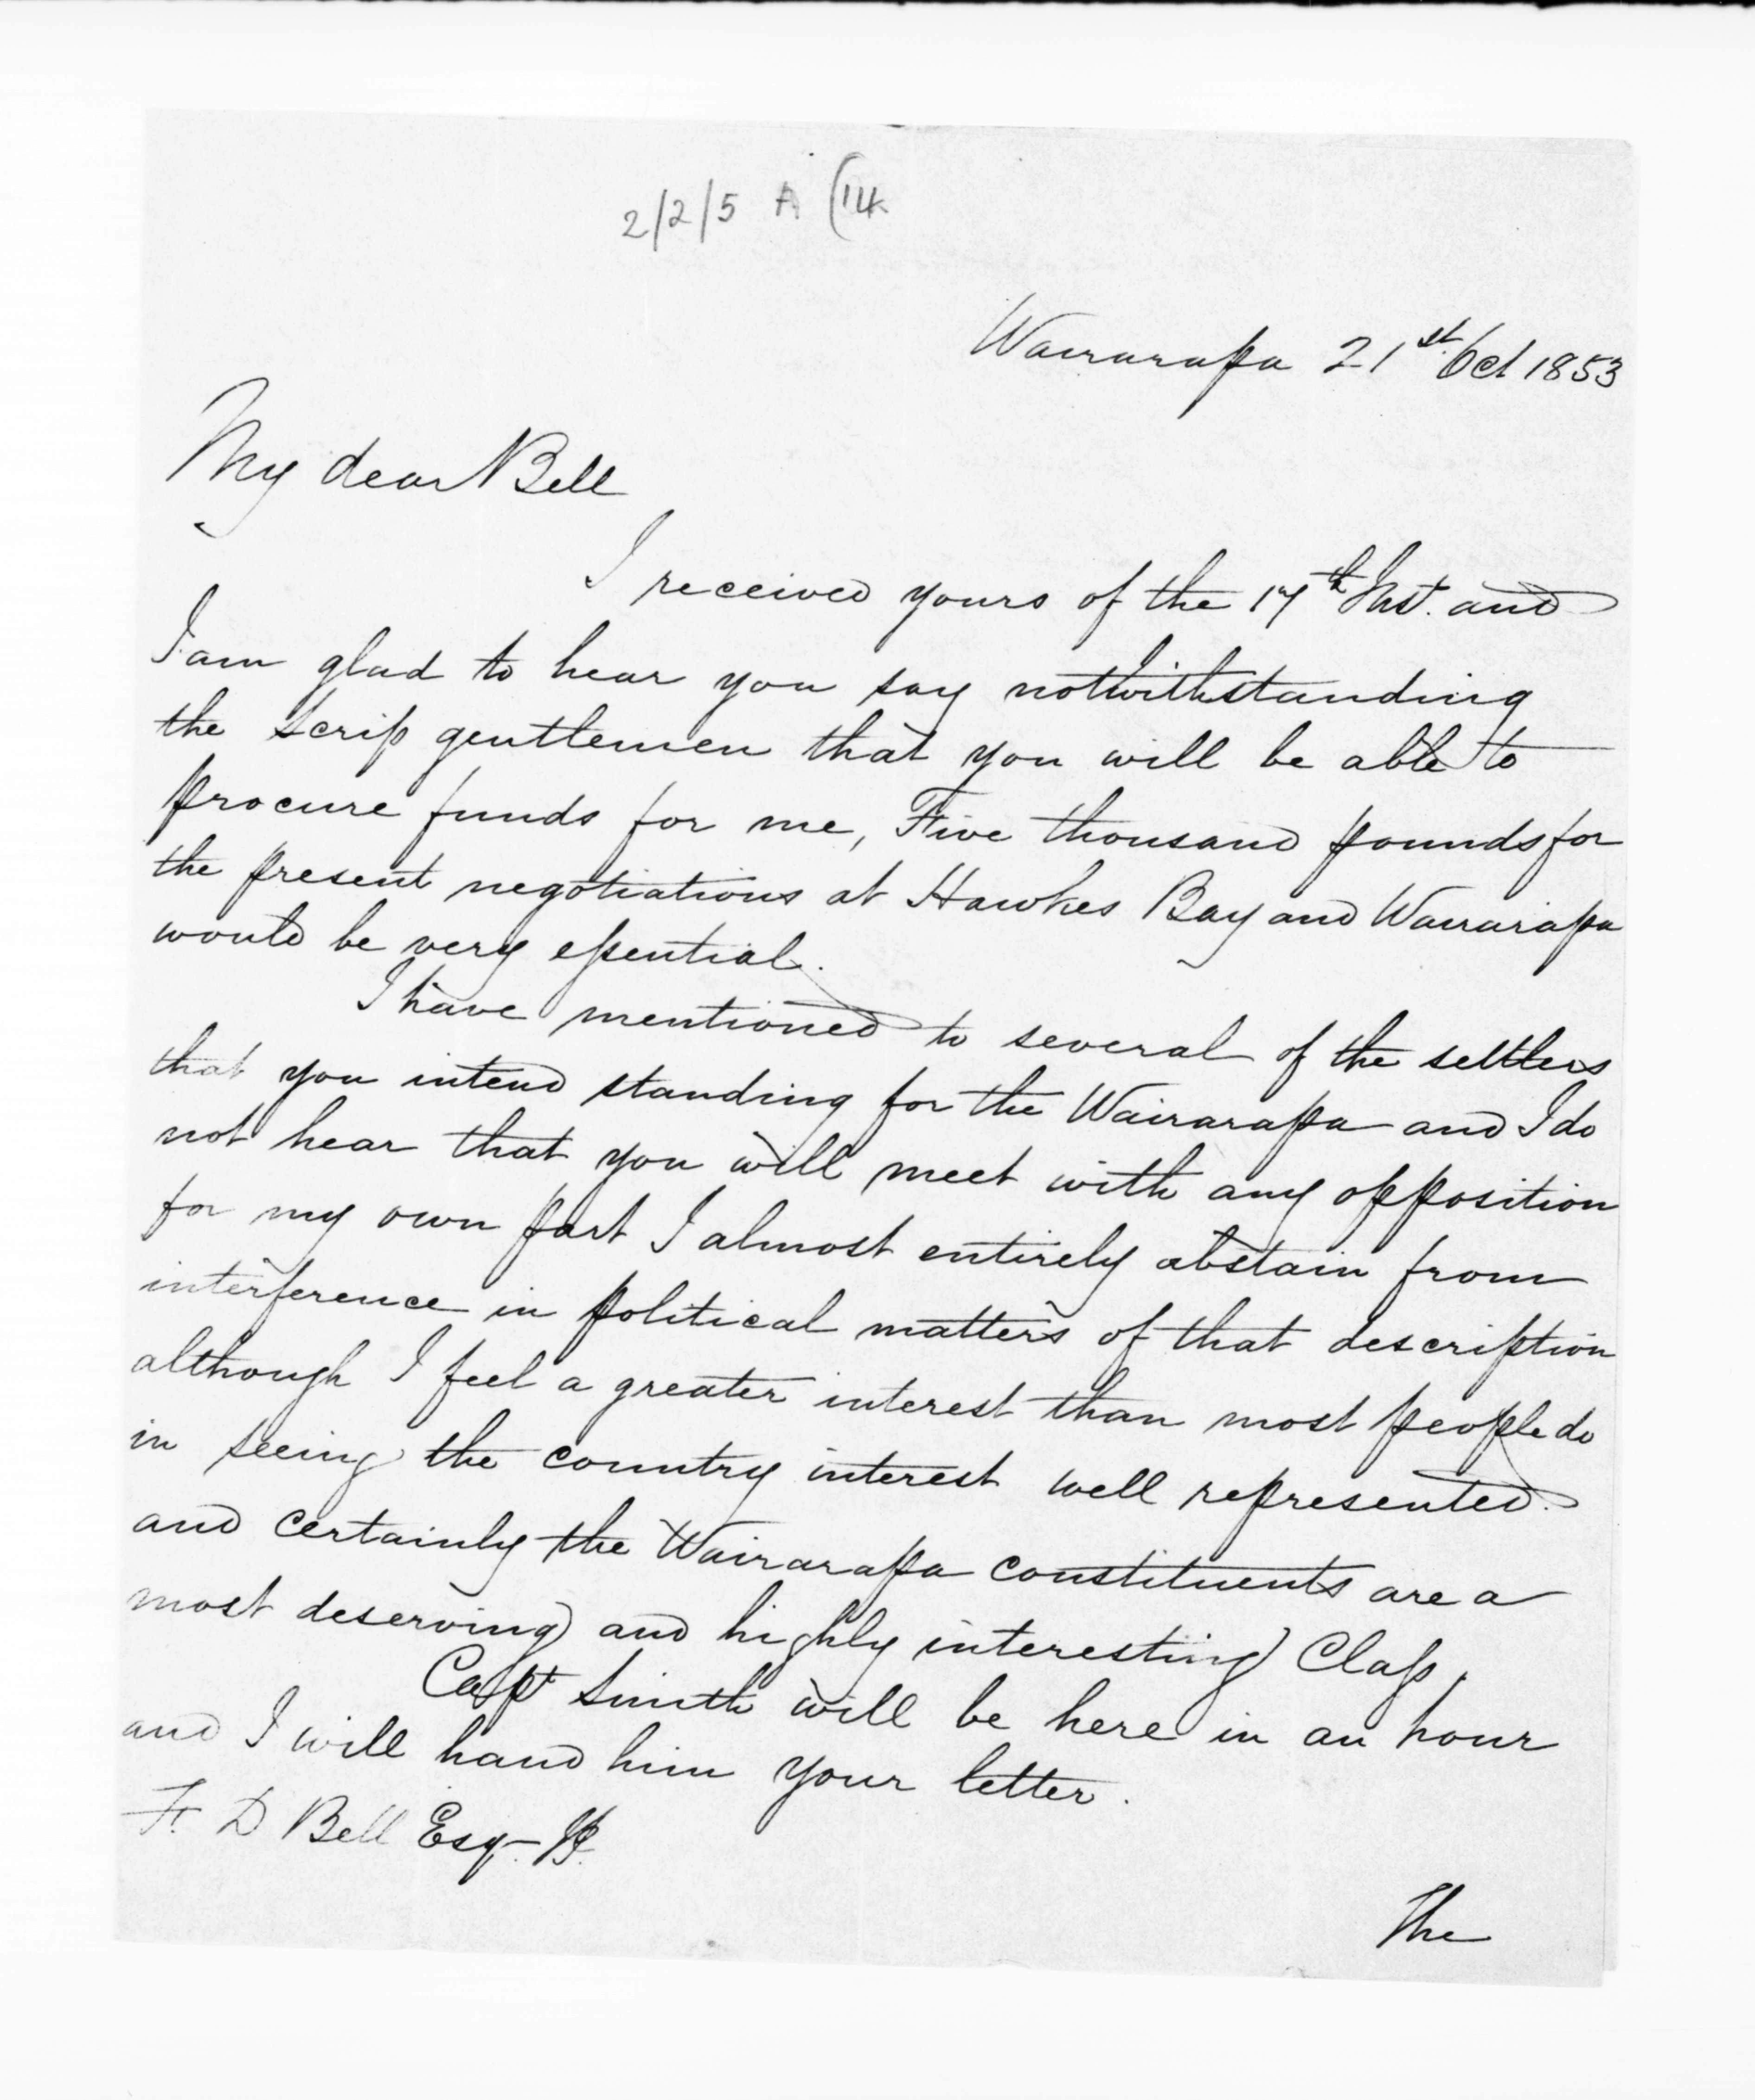 2/2/5 A (14
Wairarapa 21st Oct 1853
My dear Bell
I received yours of the 17th Inst. and
I am glad to hear you say notwithstanding
the Scrip gentlemen that you will be able to
procure funds for me, Five thousand pounds for
the present negotiations at Hawkes Bay and Wairarapa
would be very essential.
I have mentioned to several of the settlers
that you intend standing for the Wairarapa and I do
not hear that you will meet with any opposition
for my own part I almost entirely abstain from
interference in political matters of that description
although I feel a greater interest than most people do
in seeing the country interest well represented.
and certainly the Wairarapa constituents are a
most deserving and highly interesting Class.
Capt Smith will be here in an hour
and I will hand him your letter.
F. D Bell Esq.
The